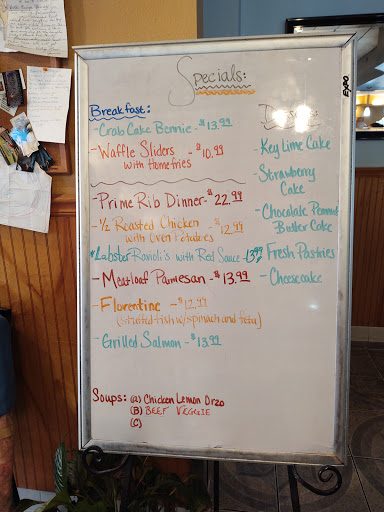 Specials:
Breakfast:
-Crab Cake Bennie - $13.99
-Waffle Sliders - $10.99
with Homefries
-Prime Rib Dinner - $22.99
-1/2 Roasted Chicken - $12.99
with Oven Potatoes
*Lobster Ravioli's with Red Sauce - 13.99
-Meatloaf Parmesan - $13.99
-Florentine - $12.99
(stuffed fish w/spinach and feta)
-Grilled Salmon - $13.99
Soups: (a) Chicken Lemon Orzo
(B) BEEF VEGGIE
(C)
-Key Lime Cake
-Strawberry
Cake
-Chocolate Peanut
Butter Cake
-Fresh Pastries
-Cheesecake
EXPO